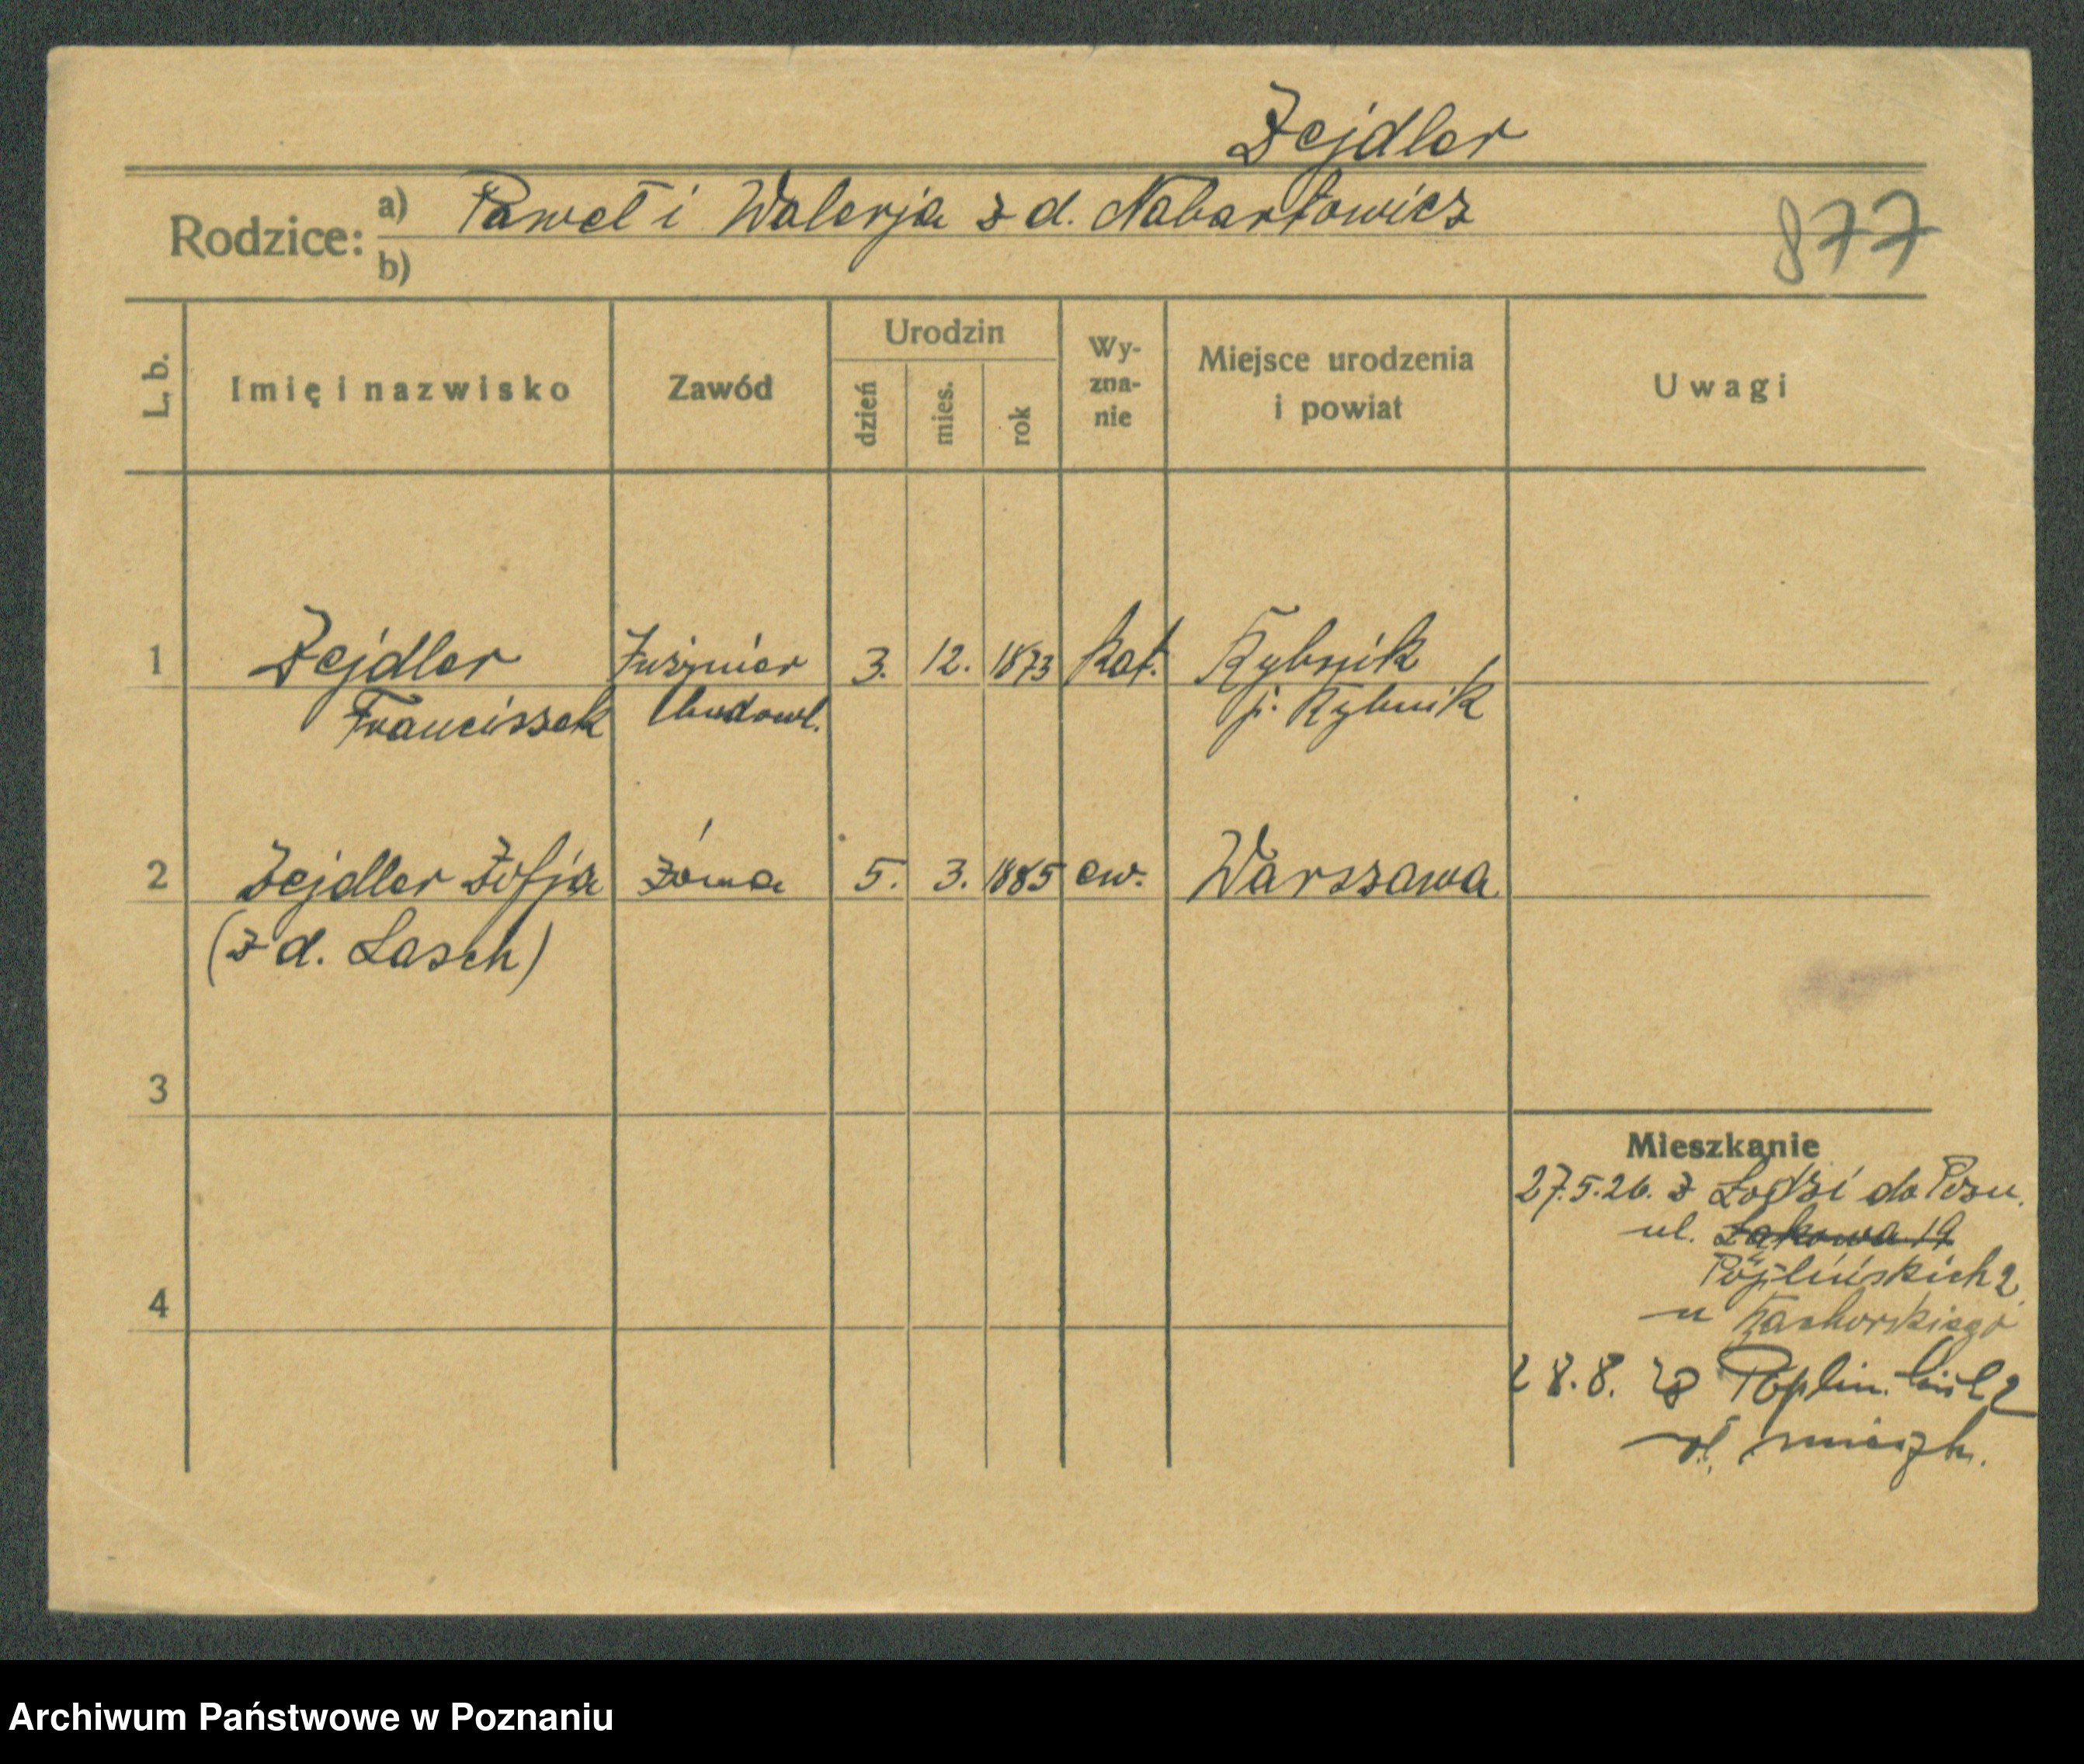 Zejdler
Rodzice: a) Paweł i Walerja z d. Nabartowicz
b)
877
L. b. Imię i nazwisko Zawód Urodzin dzień mies. rok Wy-zna-nie Miejsce urodzenia i powiat Uwagi
1 Zejdler Inżynier 3. 12. 1873 kat. Rybnik
Franciszek budowl. p. Rybnik
2 Zejdler Zofja żona 5. 3. 1885 ew. Warszawa
(z d. Lasch)
3
Mieszkanie
27.5.26. z Łodzi do Pozn.
ul. Łąkowa 19
Póplińskich 2
4
u
28.8. Poplin. 2